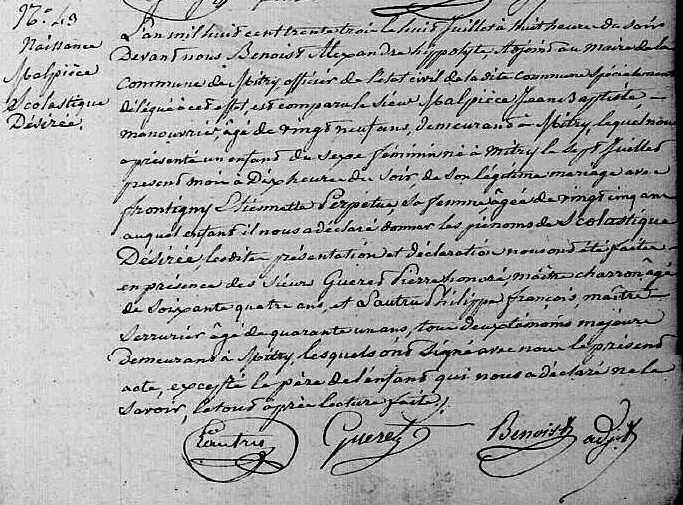 N.º 43
Naissance
Malpièce
Scolastique
Désirée.
L'an mil huit cent trente trois le huit Juillet à huit heure du soir
Devant nous Benoist Alexandre hippolyte, Adjoint au maire de la
Commune de Mitry officier de l'etat civil de la dite Commune spécialement
délégué à cet effet, est comparu le sieur Malpièce Jean Baptiste, –
manouvrier, âgé de vingt neuf ans, demeurand à Mitry, lequel nous
a présenté un enfant du sexe féminin né à mitry le sept Juillet
présend mois à Dix heure du soir, de son légitime mariage avec
frontigny Etiennette Perpétue, sa femme âgée de vingt cinq ans
auquel enfant il nous a déclaré donner les prénoms de Scolastique
Désirée, les dite présentation et déclaration nous ond été faite –
en présence des Sieur Gueret Pierre honoré, maître charron âgé
de soixante quatre ans, et Lautru Philippe françois, maître –
Serrurier âgé de quarante un ans, tous deux témoins majeurs
Demeurand à Mitry, lesquels ond signé avec nous le présend
acte, excepté le père de l'enfand qui nous a déclaré ne le
savoir, le toud après lecture faite.
Lautru Gueret Benoist adjt